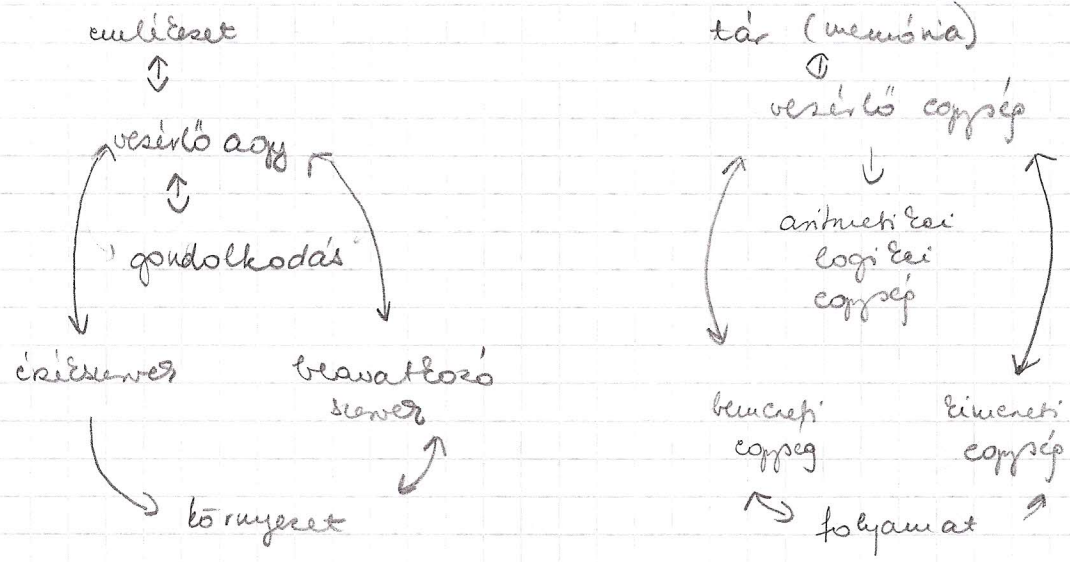 emlékezet
vezérlő agy
gondolkodás
érzékszervek
beavatkozó
szervek
környezet
tár (memória)
vezérlő egység
aritmetikai
logikai
egység
bemeneti
egység
kimeneti
egység
folyamat